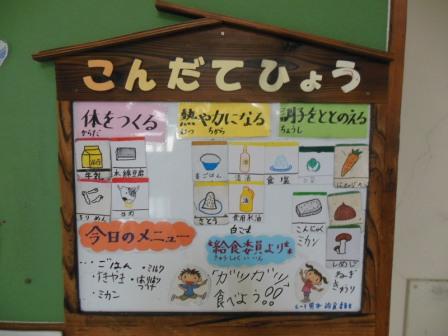 こんだてひょう
体をつくる
からだ
熱や力になる
ねつ ちから
調子をととのえる
ちょうし
牛乳
木綿豆腐
ちりめん
麦ごはん
清酒
食塩
さとう
食用米油
白ごま
こんにゃく
ミカン
しめじ
ねぎ
きゅうり
今日のメニュー
・ごはん
・ミルク
・すきやき
・はりはりづけ
・ミカン
給食委員より
きゅうしょくいいん
「ガツガツ
食べよう!!